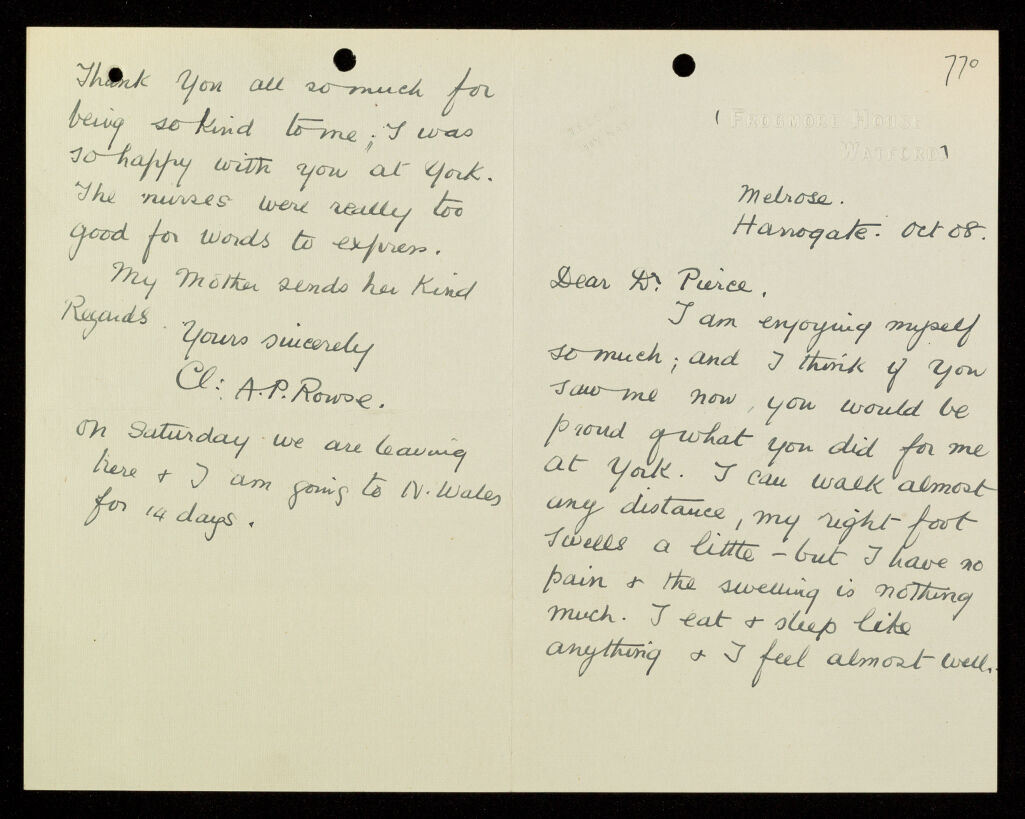 770
( FROGMORE HOUSE
WATFORD )
Melrose.
Harrogate. Oct 08.
Dear Dr. Pierce,
I am enjoying myself
so much; and I think if you
saw me now, you would be
proud of what you did for me
at York. I can walk almost
any distance, my right foot
swells a little - but I have no
pain & the swelling is nothing
much. I eat & sleep like
anything & I feel almost well.
Thank you all so much for
being so kind to me; I was
so happy with you at York.
The nurses were really too
good for words to express.
My Mother sends her Kind
Regards
Yours sincerely
Cl: A.P. Rowse.
On Saturday we are leaving
here & I am going to N. Wales
for 14 days.